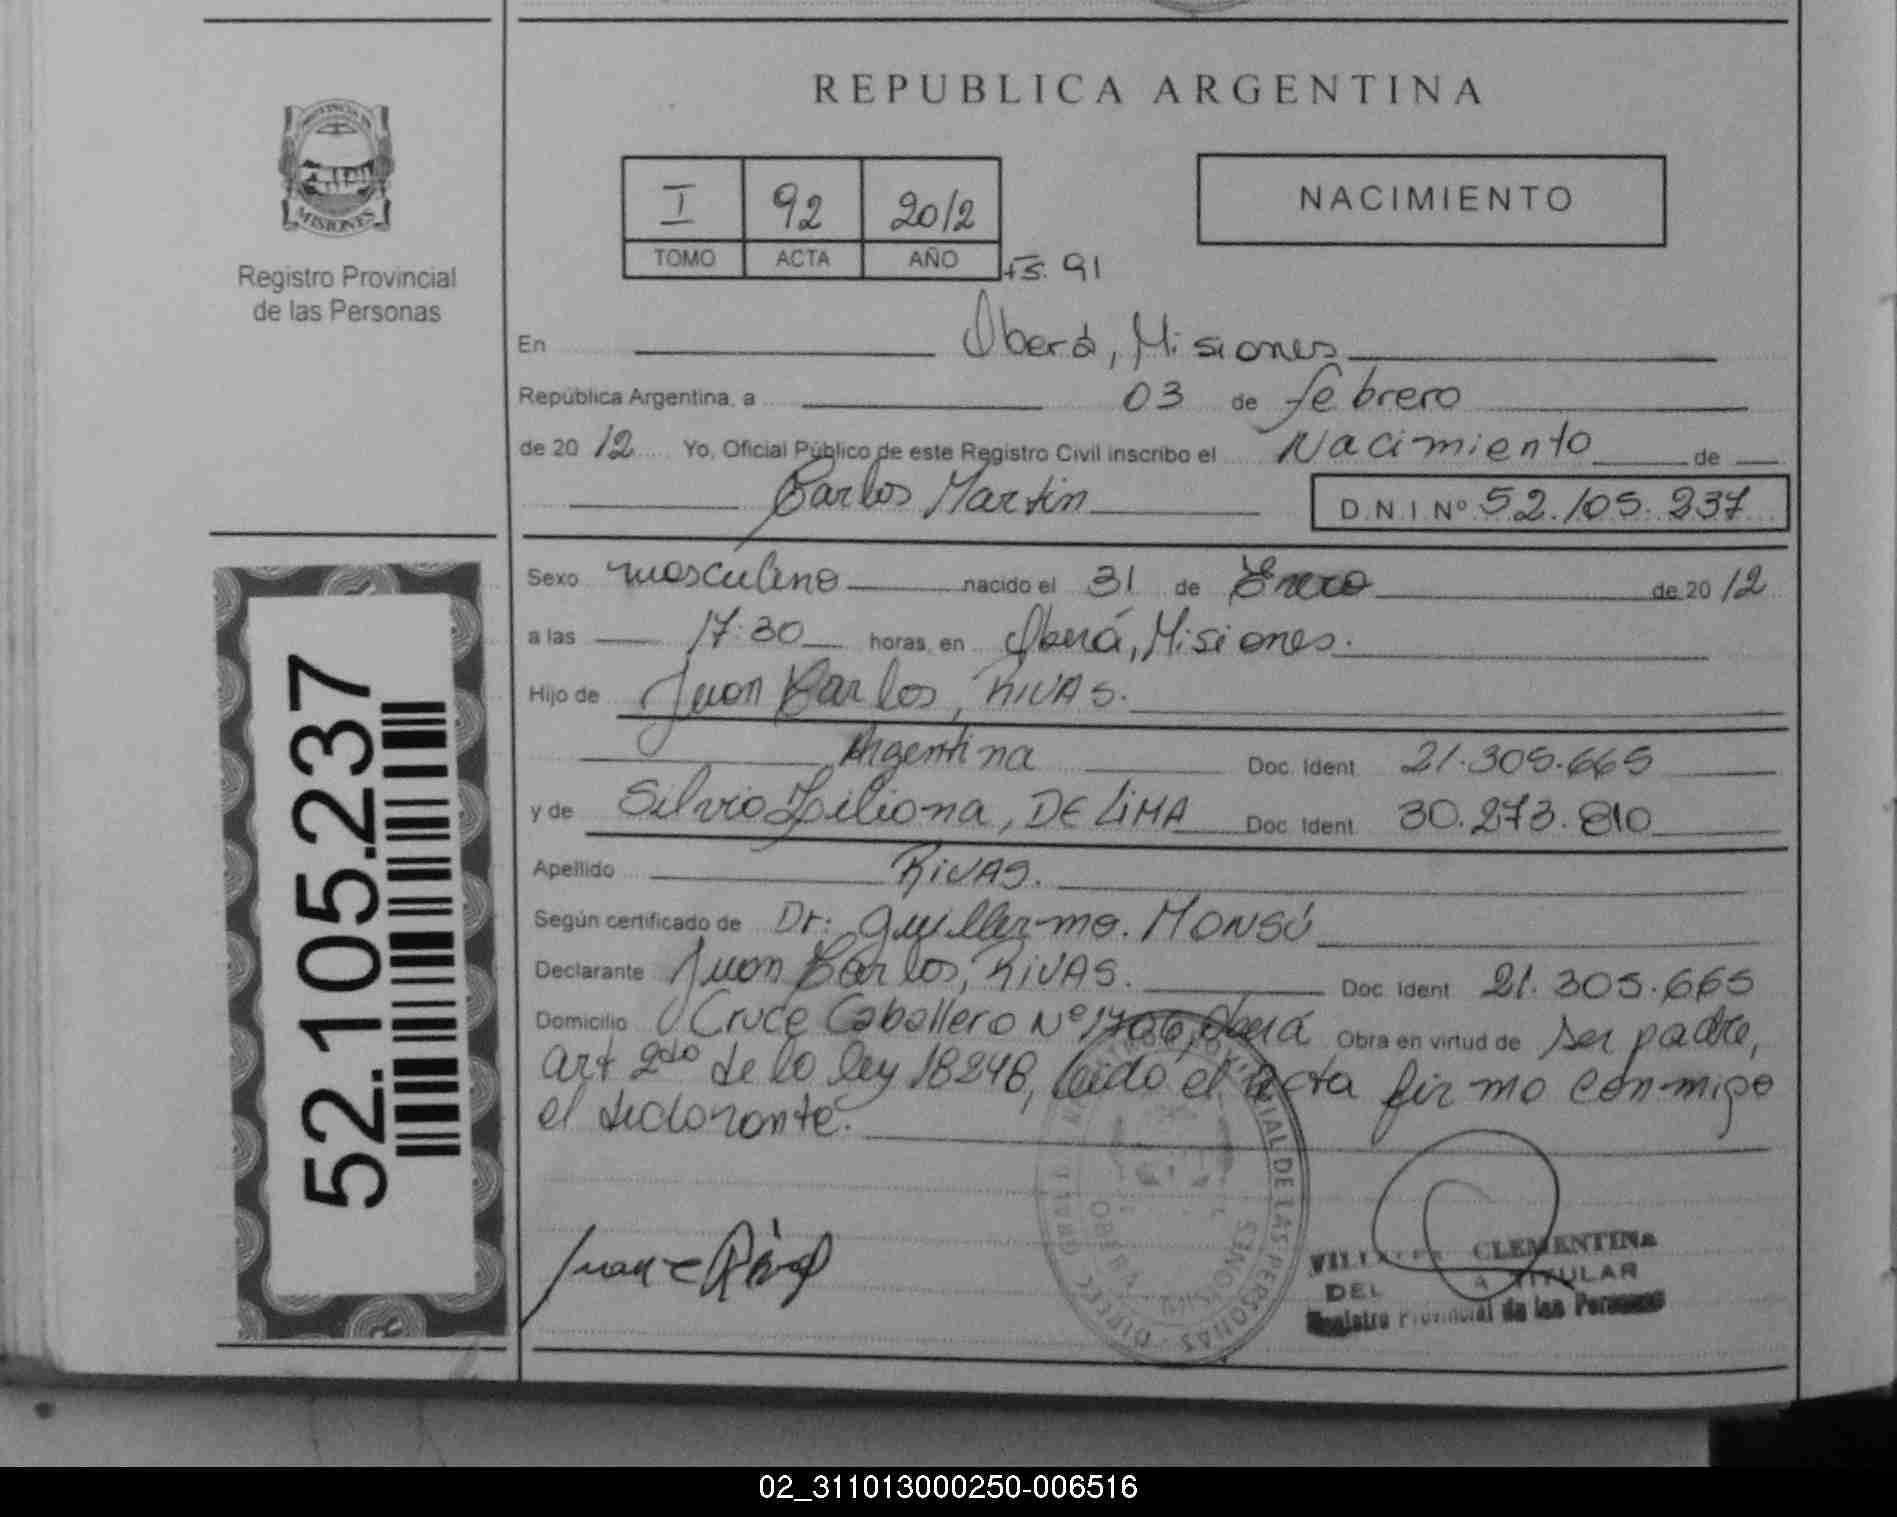 REPUBLICA ARGENTINA
PROVINCIA DE
MISIONES
Registro Provincial
de las Personas
I 92 2012
TOMO ACTA AÑO
Fs. 91
NACIMIENTO
En Oberá, Misiones
República Argentina, a 03 de febrero
de 2012 Yo, Oficial Público de este Registro Civil inscribo el Nacimiento de
Carlos Martin D.N.I Nº 52.105.237
Sexo masculino nacido el 31 de Enero de 2012
a las 17:30 horas, en Oberá, Misiones.
Hijo de Juan Carlos, RIVAS.
Argentina Doc. Ident 21.305.665
y de Silvia Liliana, DE LIMA Doc. Ident 30.273.810
Apellido RIVAS.
Según certificado de Dr: Guillermo. MONSÚ
Declarante Juan Carlos, RIVAS. Doc. Ident 21.305.665
Domicilio Cruce Caballero Nº 1706, Oberá Obra en virtud de ser padre,
art 2do de la ley 18248, leido el acta firmo conmigo
el declarante.
52.105.237
OBERA MISIONES
PROVINCIAL DE LAS PERSONAS
CLEMENTINA
DEL A TITULAR
Registro Provincial de las Personas
02_311013000250-006516